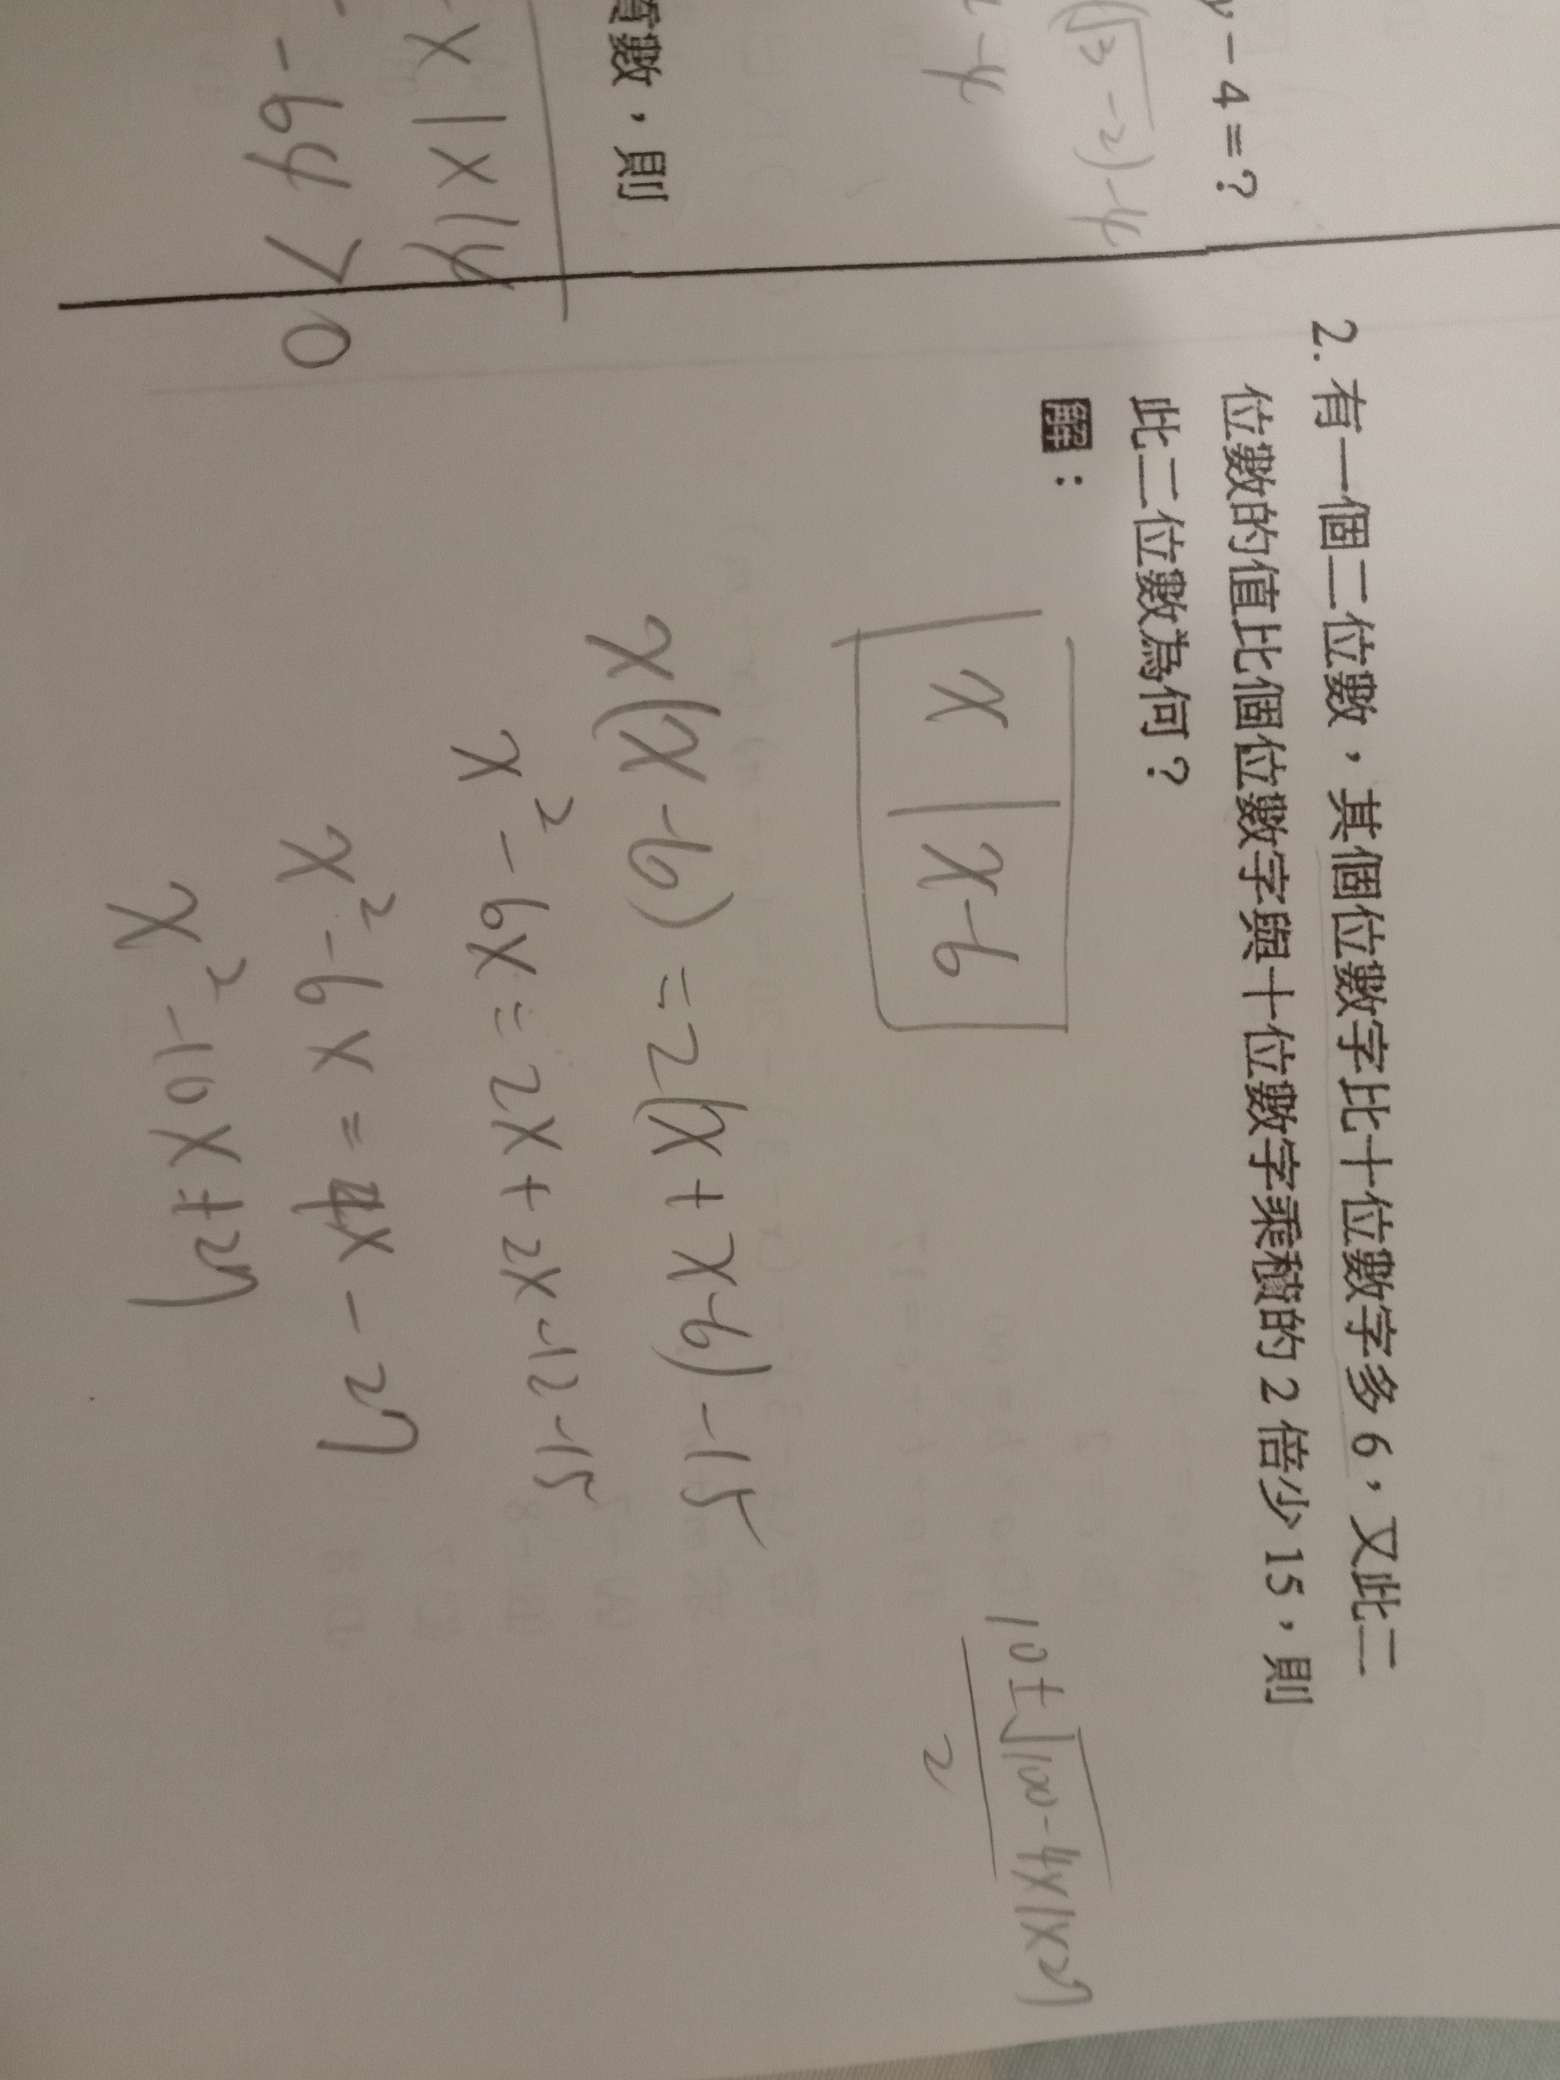 y－4＝？
√3－2)－4
－4
數，則
x1x14
－64＞0
2. 有一個二位數，其個位數字比十位數字多 6，又此二
位數的值比個位數字與十位數字乘積的 2 倍少 15，則
此二位數為何？
解：
x | x-6
10±√100-4×1×27
2
x(x-6)=2(x+x-6)-15
x²-6x=2x+2x-12-15
x²-6x=4x-27
x²-10x+27